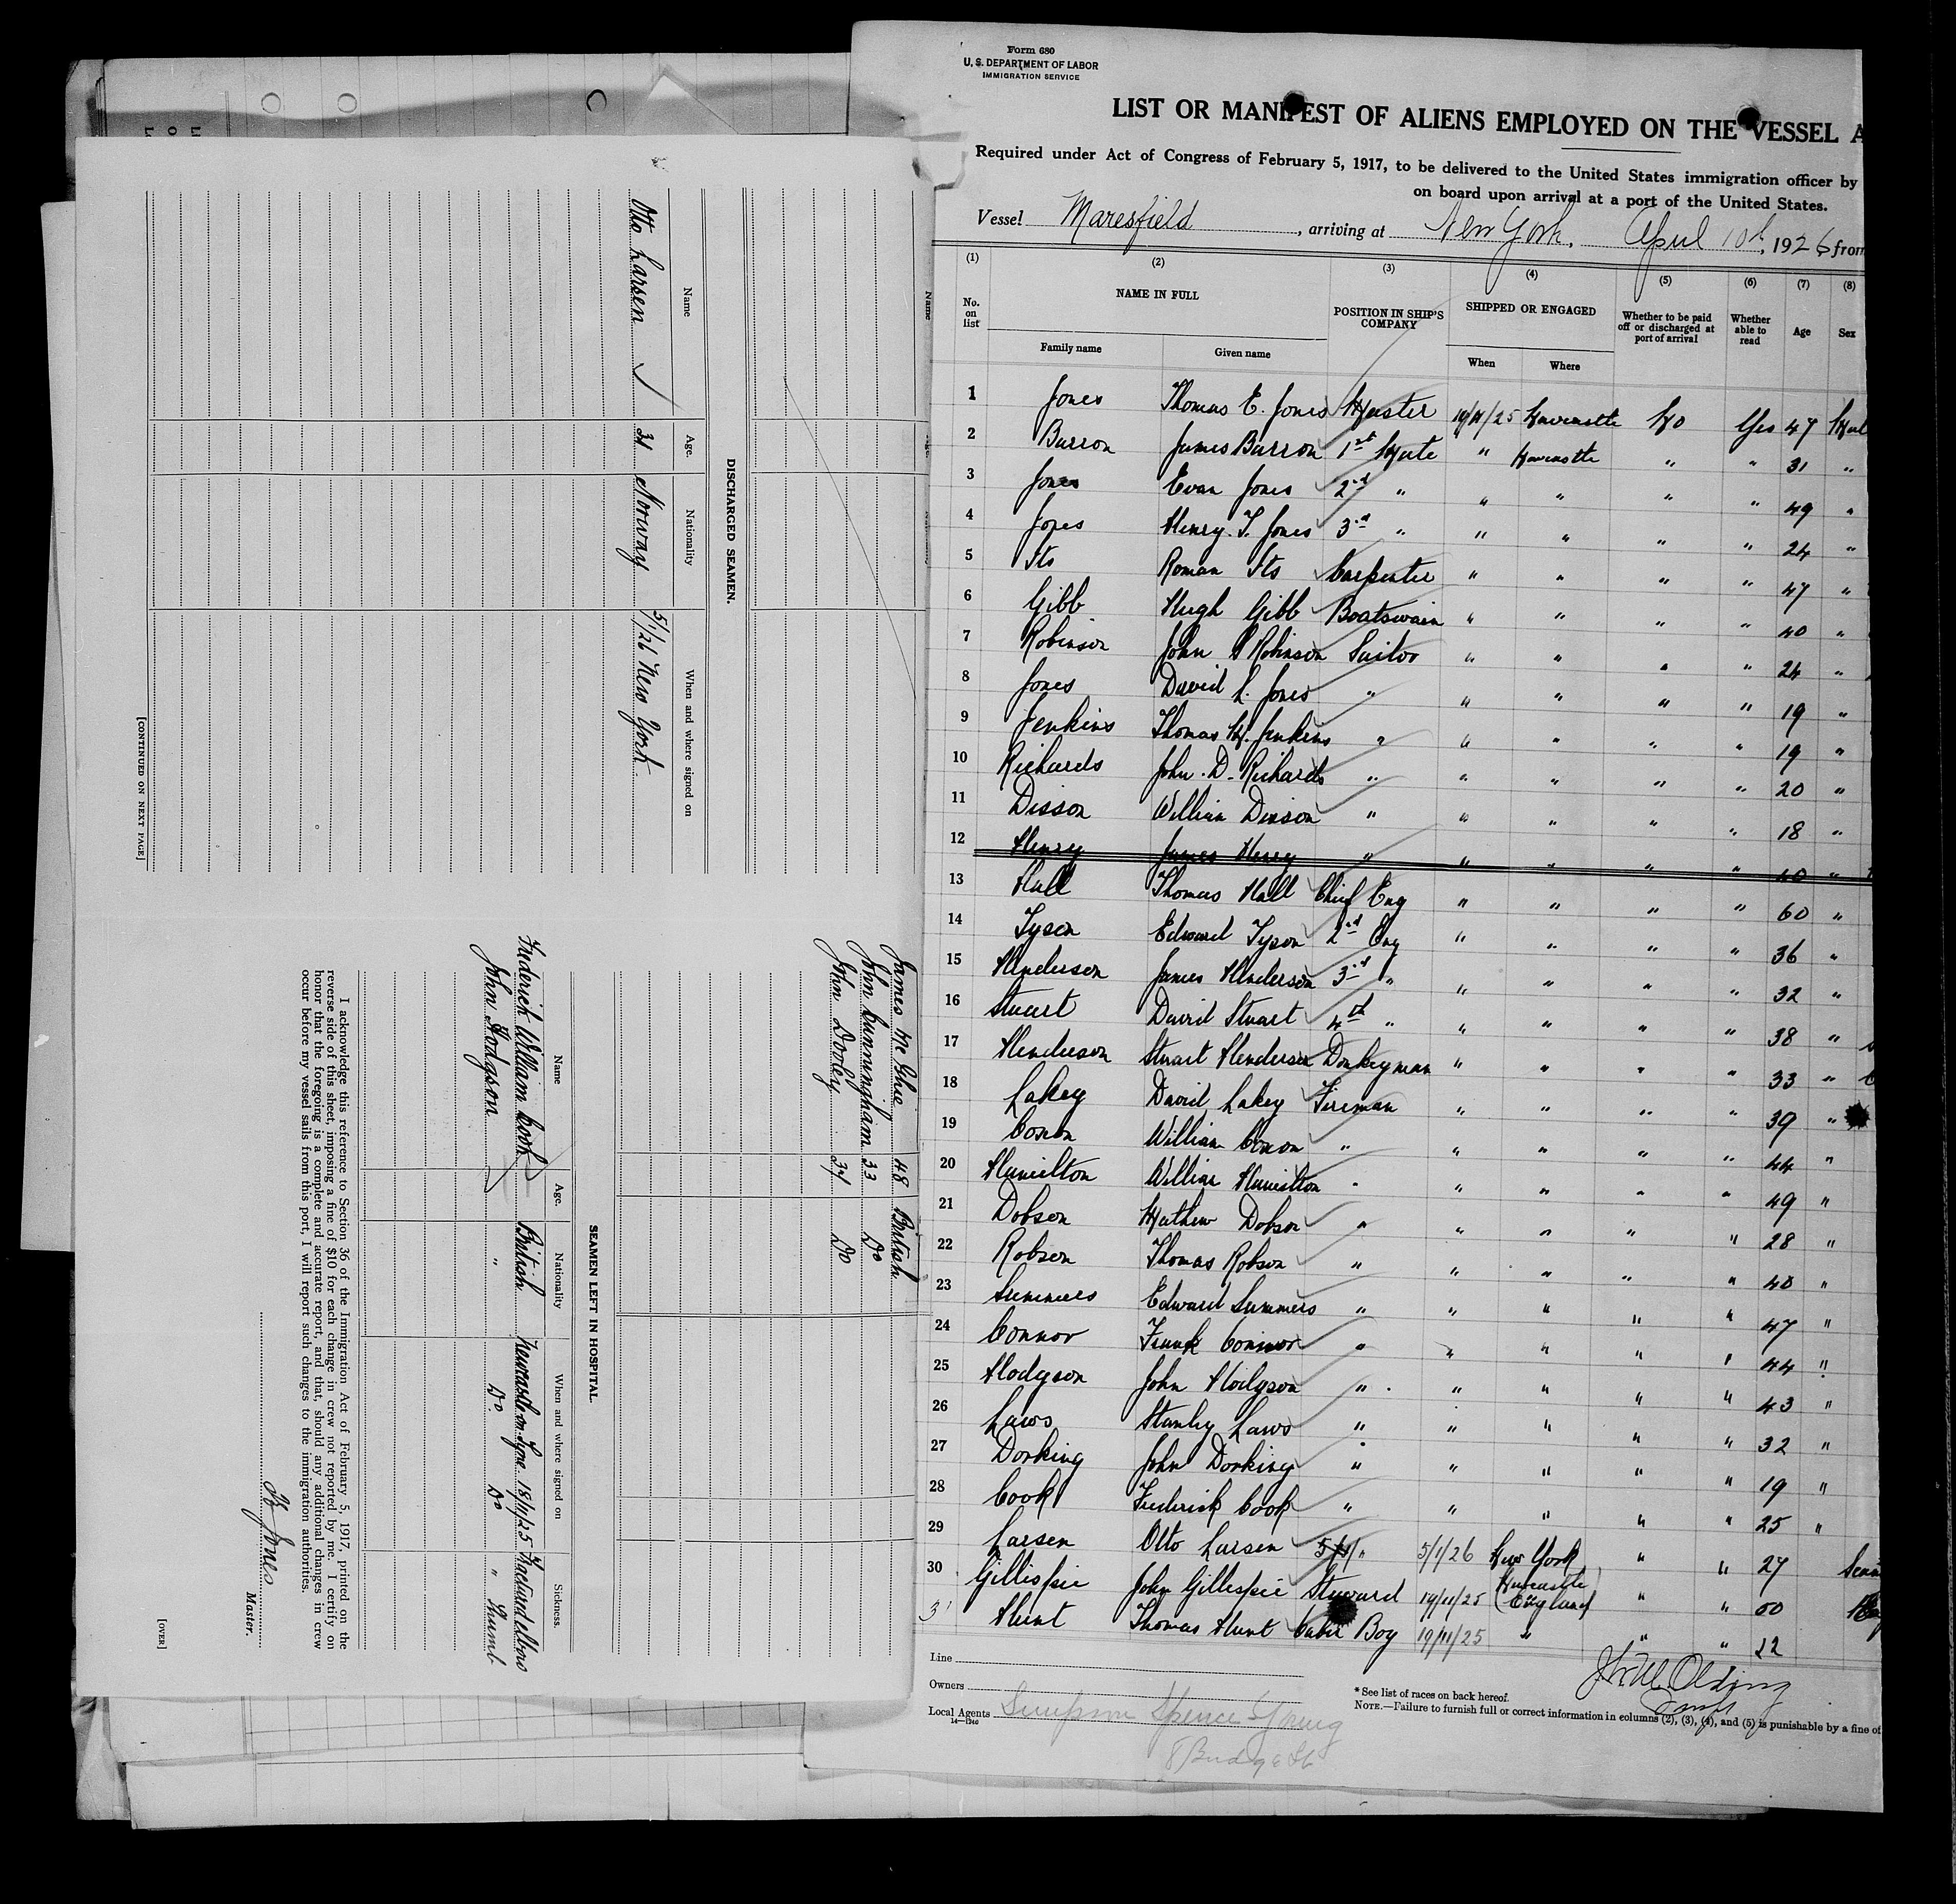 Form 680
U. S. DEPARTMENT OF LABOR
IMMIGRATION SERVICE
LIST OR MANIFEST OF ALIENS EMPLOYED ON THE VESSEL A
Required under Act of Congress of February 5, 1917, to be delivered to the United States immigration officer by
on board upon arrival at a port of the United States.
Vessel Maresfield, arriving at New York, April 10th, 1926 from
(1) (2) (3) (4) (5) (6) (7) (8)
No. on list NAME IN FULL POSITION IN SHIP'S COMPANY SHIPPED OR ENGAGED Whether to be paid off or discharged at port of arrival Whether able to read Age Sex
Family name Given name When Where
1 Jones Thomas E. Jones Master 19/11/25 Newcastle No Yes 47 Mal
2 Barron James Barron 1st Mate " Newcastle " " 31 "
3 Jones Evan Jones 2nd " " " " " 49 "
4 Jones Henry. T. Jones 3rd " " " " " 24 "
5 Its Roman Its Carpenter " " " " 47 "
6 Gibb Hugh Gibb Boatswain " " " " 40 "
7 Robinson John Robinson Sailor " " " " 24 "
8 Jones David L. Jones " " " " " 19 "
9 Jenkins Thomas M. Jenkins " " " " " 19 "
10 Richards John. D. Richards " " " " " 20 "
11 Dixson William Dixson " " " " " 18 "
12 Henry James Henry " " " " " 40 "
13 Hall Thomas Hall Chief Eng " " " " 60 "
14 Tyson Edward Tyson 2nd Eng " " " " 36 "
15 Henderson James Henderson 3rd " " " " " 32 "
16 Stuart David Stuart 4th " " " " " 38 "
17 Henderson Stuart Henderson Donkeyman " " " " 33 "
18 Lakey David Lakey Fireman " " " " 39 "
19 Coxon William Coxon " " " " " 44 "
20 Hamilton William Hamilton " " " " " 49 "
21 Dobson Mathew Dobson " " " " " 28 "
22 Robson Thomas Robson " " " " " 40 "
23 Summers Edward Summers " " " " " 47 "
24 Connor Frank Connor " " " " " 44 "
25 Hodgson John Hodgson " " " " " 43 "
26 Laws Stanley Laws " " " " " 32 "
27 Dorking John Dorking " " " " " 19 "
28 Cook Frederick Cook " " " " " 25 "
29 Larsen Otto Larsen " 5/1/26 New York " " 27
30 Gillispie John Gillespie Steward 19/11/25 Newcastle England " "
31 Hunt Thomas Hunt Cabin Boy 19/11/25 " " " 22
Line
Owners
Local Agents Simpson Spence Young
8 Bridge St
14—1240
* See list of races on back hereof.
NOTE.—Failure to furnish full or correct information in columns (2), (3), (4), and (5) is punishable by a fine of
DISCHARGED SEAMEN.
Name Age. Nationality When and where signed on
Otto Larsen Norway 5/1/26 New York.
[CONTINUED ON NEXT PAGE]
James McGhie 48 British
John Cunningham 33 Do
John Dooley 34 Do
SEAMEN LEFT IN HOSPITAL.
Name Age. Nationality When and where signed on Sickness.
Frederick William Cook British Newcastle on Tyne. 18/11/25 Fractured elbow
John Hodgson " Do Do " Thumb
I acknowledge this reference to Section 36 of the Immigration Act of February 5, 1917, printed on the
reverse side of this sheet, imposing a fine of $10 for each change in crew not reported by me. I certify on
honor that the foregoing is a complete and accurate report, and that, should any additional changes in crew
occur before my vessel sails from this port, I will report such changes to the immigration authorities.
Jones
Master.
[OVER]